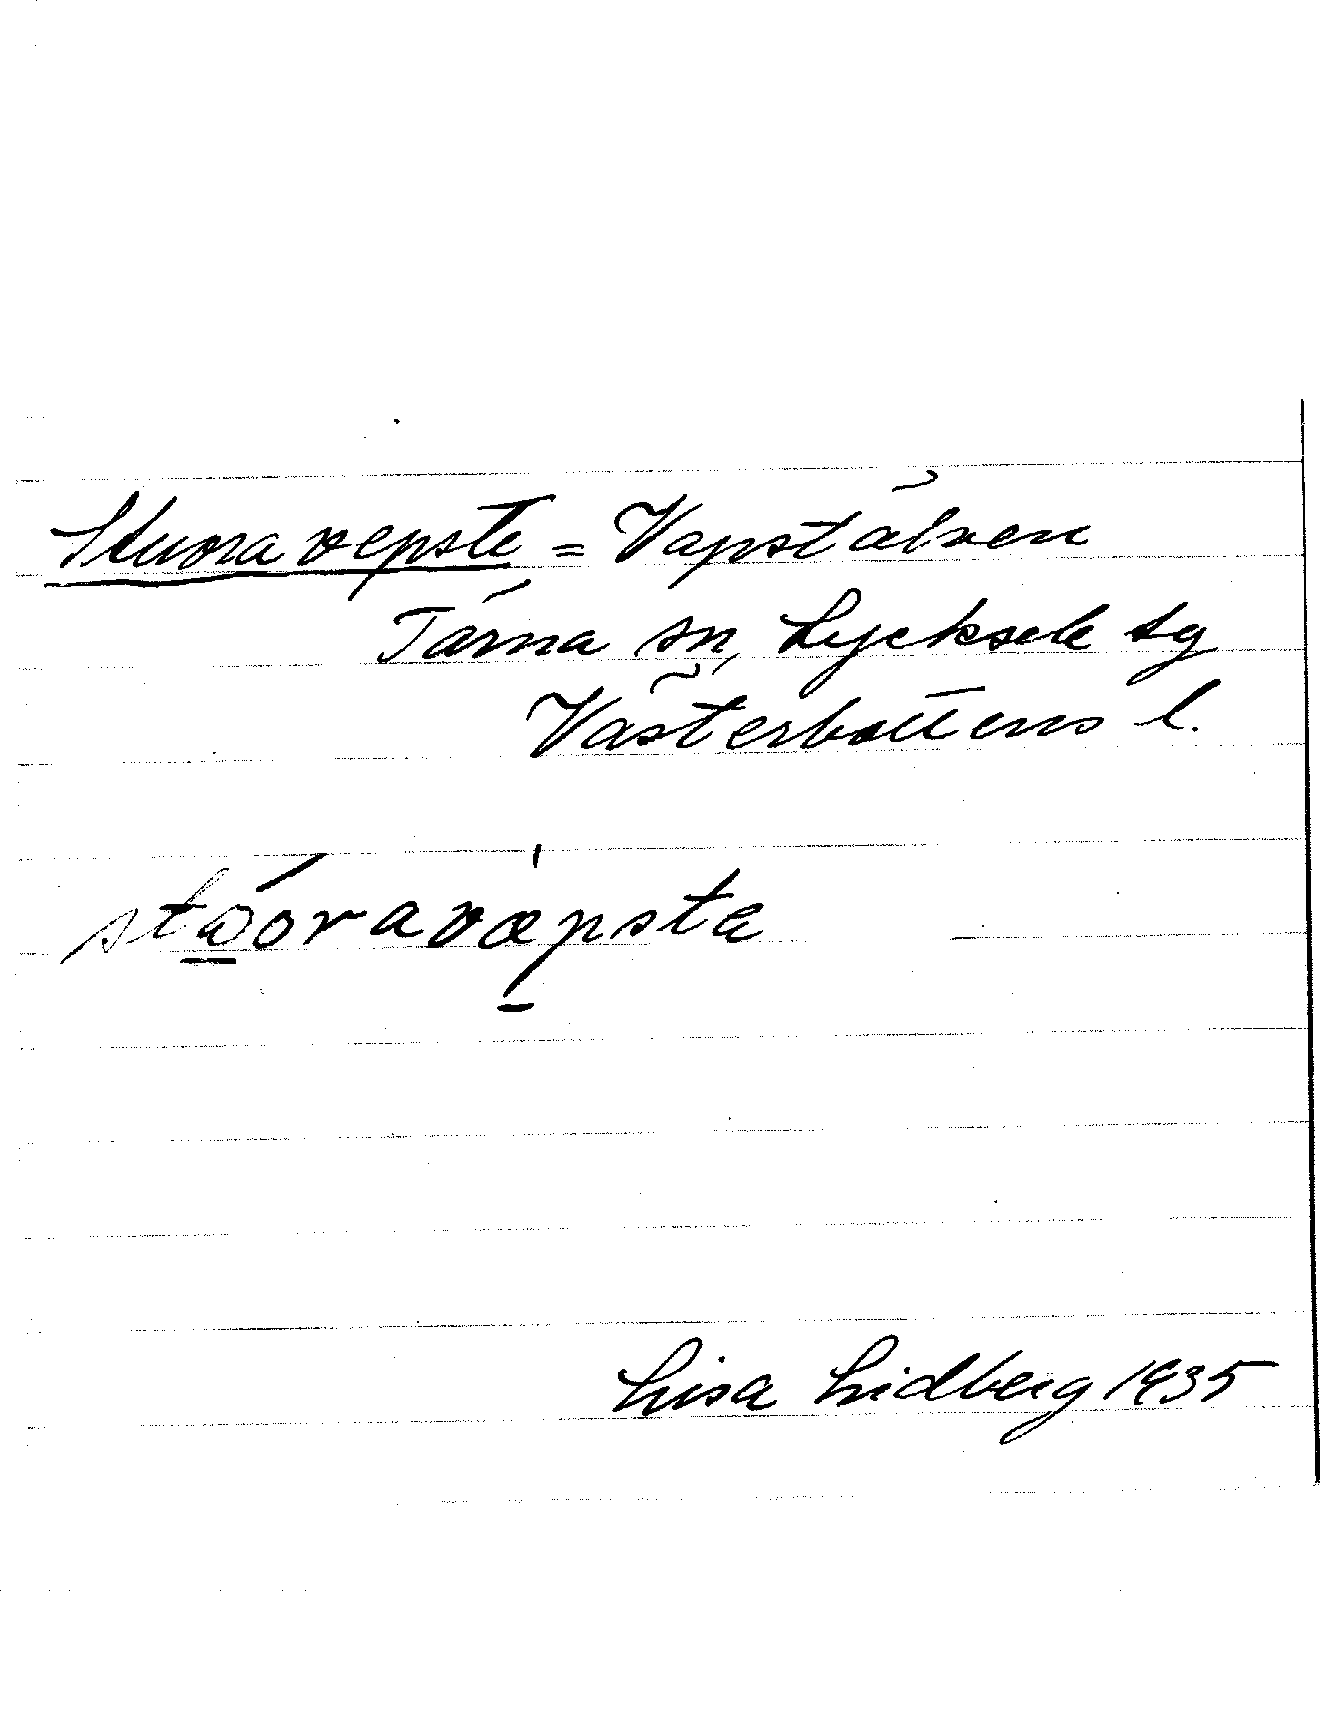 Stuora vepste = Vapstälven
Tärna sn, Lycksele tg
Västerbottens l.
Lisa Lidberg 1935